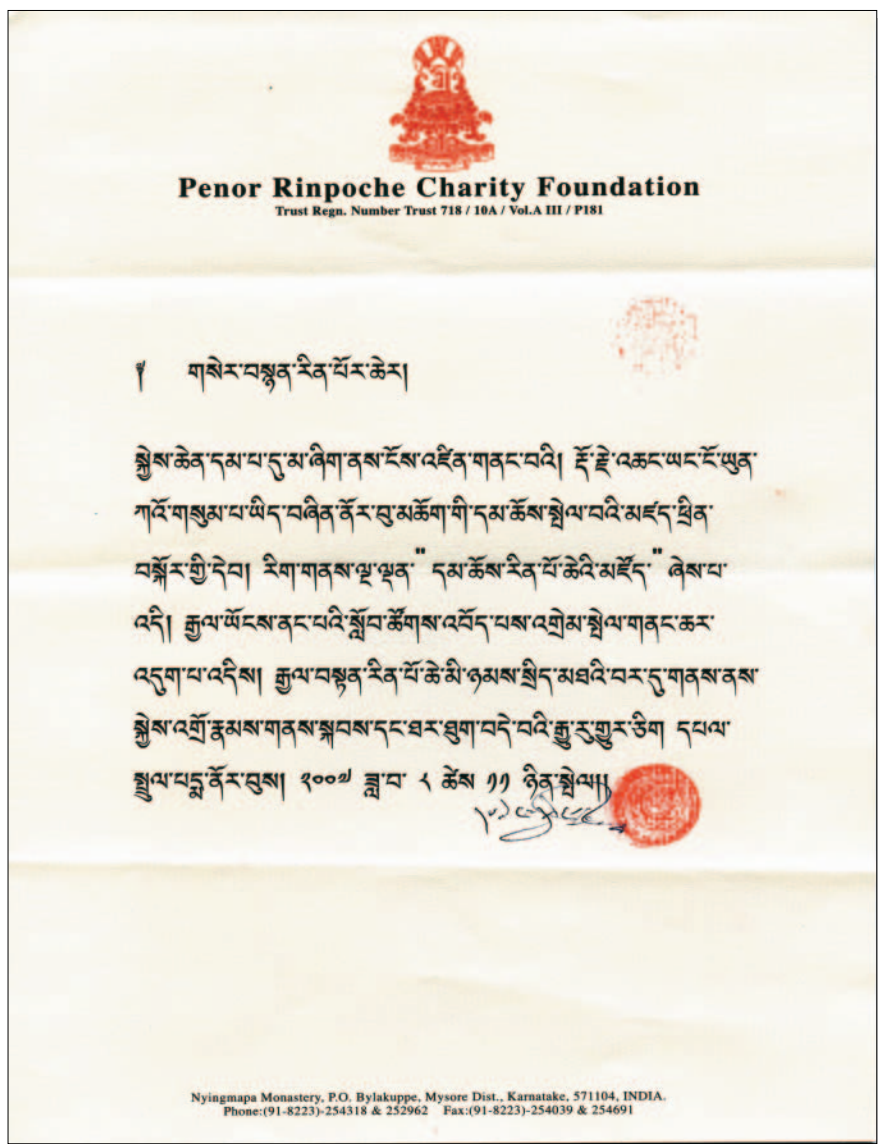 Penor Rinpoche Charity Foundation
Trust Regn. Number Trust 718 / 10A / Vol.A III / P181
༄ གསེར་བསྙན་རིན་པོར་ཆེར།
སྐྱེས་ཆེན་དམ་པ་དུ་མ་ཞིག་ནས་ངོས་འཛིན་གནང་བའི། རྡོ་རྗེ་འཆང་ཡང་ངོ་ཡུན་
ཀའོ་གསུམ་པ་ཡིད་བཞིན་ནོར་བུ་མཆོག་གི་དམ་ཆོས་སྤེལ་བའི་མཛད་ཕྲིན་
བསྐོར་གྱི་དེབ། རིག་གནས་ལྔ་ལྡན་" དམ་ཆོས་རིན་པོ་ཆེའི་མཛོད་" ཞེས་པ་
འདི། རྒྱལ་ཡོངས་ནང་པའི་སློབ་ཚོགས་འབོད་པས་འགྲེམ་སྤེལ་གནང་ཆར་
འདུག་པ་འདིས། རྒྱལ་བསྟན་རིན་པོ་ཆེ་མི་ཉམས་སྲིད་མཐའི་བར་དུ་གནས་ནས་
སྐྱེས་འགྲོ་རྣམས་གནས་སྐབས་དང་ཐར་ཐུག་བདེ་བའི་རྒྱུ་རུ་གྱུར་ཅིག དཔལ་
སྤྲུལ་པདྨ་ནོར་བུས། ༢༠༠༧ ཟླ་བ་ ༨ ཚེས ༡༡ ཉིན་སྤེལ།།
Nyingmapa Monastery, P.O. Bylakuppe, Mysore Dist., Karnatake, 571104, INDIA.
Phone:(91-8223)-254318 & 252962 Fax:(91-8223)-254039 & 254691